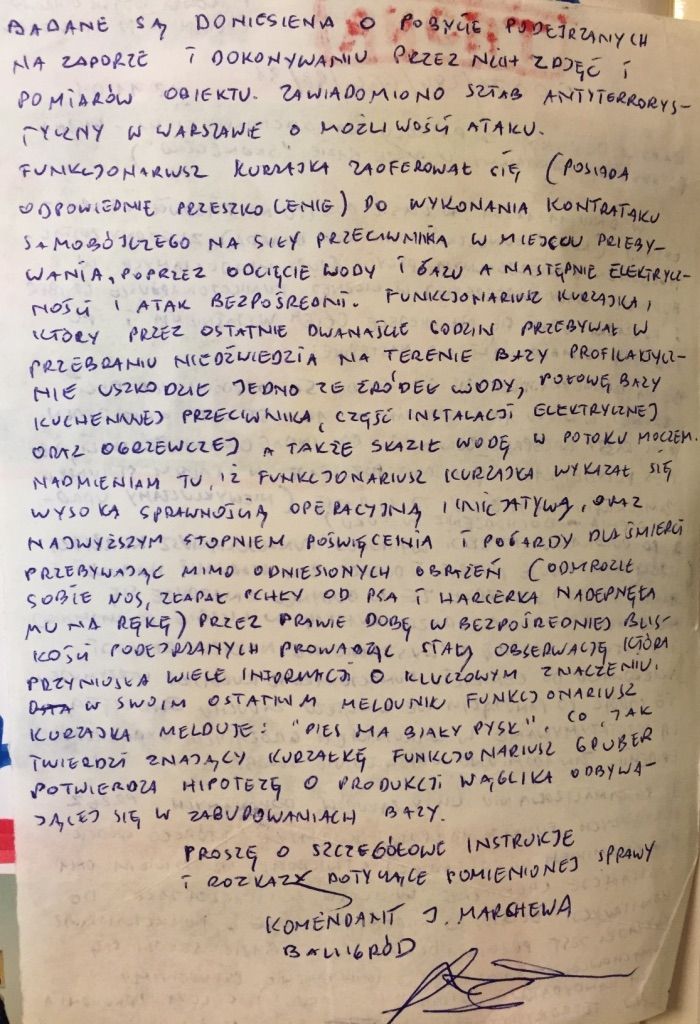 BADANE SĄ DONIESIENIA O POBYCIE PODEJRZANYCH
NA ZAPORZE I DOKONYWANIU PRZEZ NICH ZDJĘĆ I
POMIARÓW OBIEKTU. ZAWIADOMIONO SZTAB ANTYTERRORYS-
TYCZNY W WARSZAWIE O MOŻLIWOŚCI ATAKU.
FUNKCJONARIUSZ KURZAJKA ZAOFEROWAŁ SIĘ (POSIADA
ODPOWIEDNIE PRZESZKOLENIE) DO WYKONANIA KONTRATAKU
SAMOBÓJCZEGO NA SIŁY PRZECIWNIKA W MIEJSCU PRZEBY-
WANIA, POPRZEZ ODCIĘCIE WODY I GAZU A NASTĘPNIE ELEKTRYCZ-
NOŚCI I ATAK BEZPOŚREDNI. FUNKCJONARIUSZ KURZAJKA,
KTÓRY PRZEZ OSTATNIE DWANAŚCIE GODZIN PRZEBYWAŁ W
PRZEBRANIU NIEDŹWIEDZIA NA TERENIE BAZY PROFILAKTYCZ-
NIE USZKODZIŁ JEDNO ZE ŹRÓDEŁ WODY, POŁOWĘ BAZY
KUCHENNEJ PRZECIWNIKA, CZĘŚĆ INSTALACJI ELEKTRYCZNEJ
ORAZ OGRZEWCZEJ A TAKŻE SKAZIŁ WODĘ W POTOKU MOCZEM.
NADMIENIAM TU, IŻ FUNKCJONARIUSZ KURZAJKA WYKAZAŁ SIĘ
WYSOKĄ SPRAWNOŚCIĄ OPERACYJNĄ I INICJATYWĄ, ORAZ
NAJWYŻSZYM STOPNIEM POŚWIĘCENIA I POGARDY DLA ŚMIERCI
PRZEBYWAJĄC MIMO ODNIESIONYCH OBRAŻEŃ (ODMROZIŁ
SOBIE NOS, ZŁAPAŁ PCHŁY OD PSA I HARCERKA NADEPNĘŁA
MU NA RĘKĘ) PRZEZ PRAWIE DOBĘ W BEZPOŚREDNIEJ BLIS-
KOŚCI PODEJRZANYCH PROWADZĄC STAŁĄ OBSERWACJĘ KTÓRA
PRZYNIOSŁA WIELE INFORMACJI O KLUCZOWYM ZNACZENIU.
W SWOIM OSTATNIM MELDUNKU FUNKCJONARIUSZ
KURZAJKA MELDUJE: "PIES MA BIAŁY PYSK". CO, JAK
TWIERDZI ZNAJĄCY KURZAŁKĘ FUNKCJONARIUSZ GRUBER
POTWIERDZA HIPOTEZĘ O PRODUKCJI WĄGLIKA ODBYWA-
JĄCEJ SIĘ W ZABUDOWANIACH BAZY.
PROSZĘ O SZCZEGÓŁOWE INSTRUKCJE
I ROZKAZY DOTYCZĄCE POMIENIONEJ SPRAWY
KOMENDANT J. MARCHEWA
BALIGRÓD